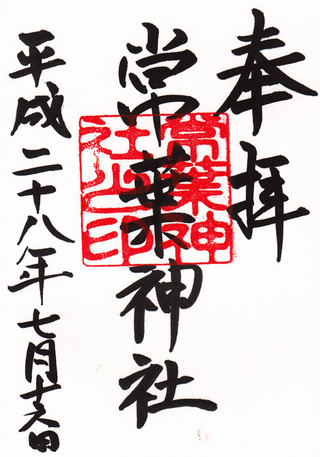 奉拝
常葉神社
常葉神社之印
平成二十八年七月十六日